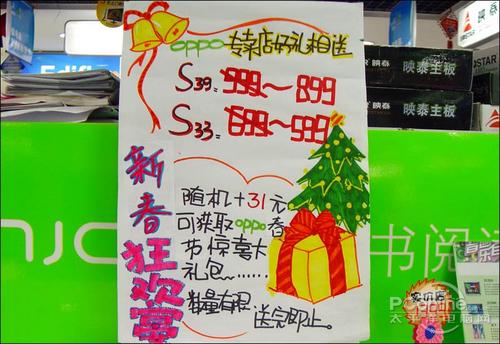 oppo专卖店好礼相送
S39: 999～899
S33: 699～599
新春狂欢宴
随机+31元
可获取oppo春
节惊喜大
礼包～……
数量有限 送完即止。
映泰
映泰主板
映泰主板
njo
书阅
PConline
太平洋电脑网